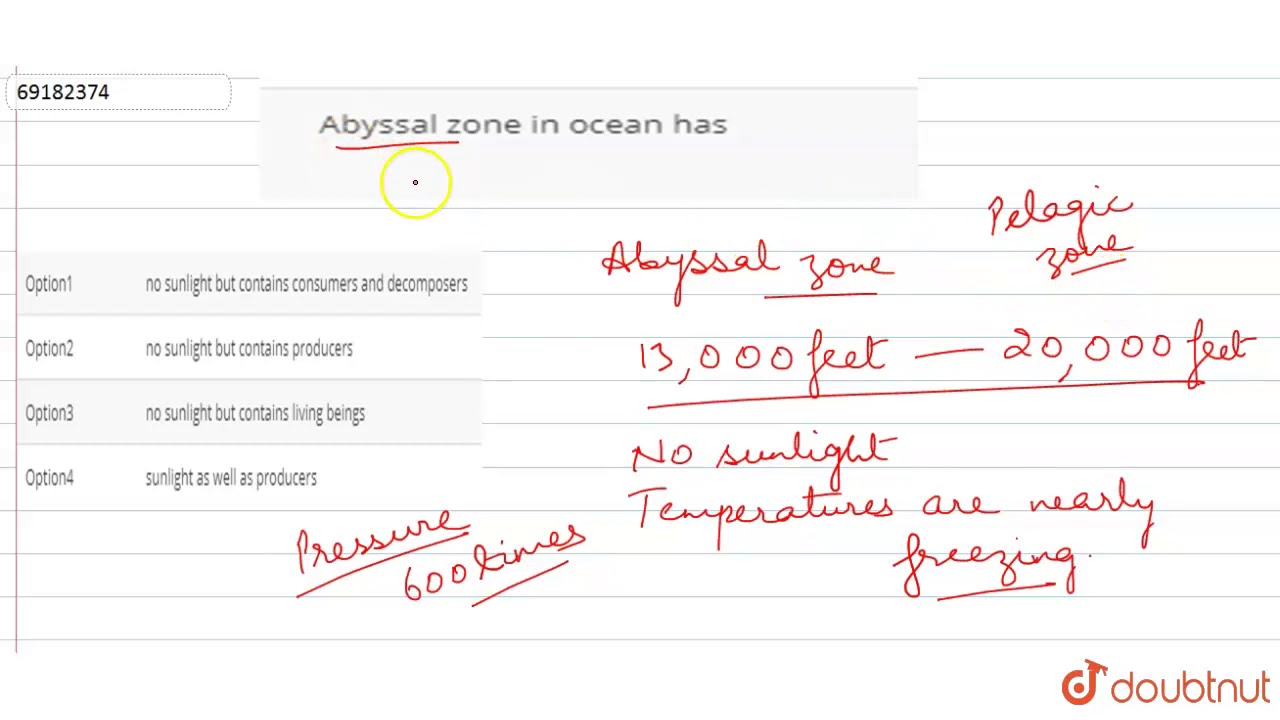 69182374
Abyssal zone in ocean has
Pelagic
zone
Abyssal zone
13,000 feet — 20,000 feet
Option1 no sunlight but contains consumers and decomposers
Option2 no sunlight but contains producers
Option3 no sunlight but contains living beings
Option4 sunlight as well as producers
No sunlight
Temperatures are nearly
freezing.
Pressure
600 times
doubtnut